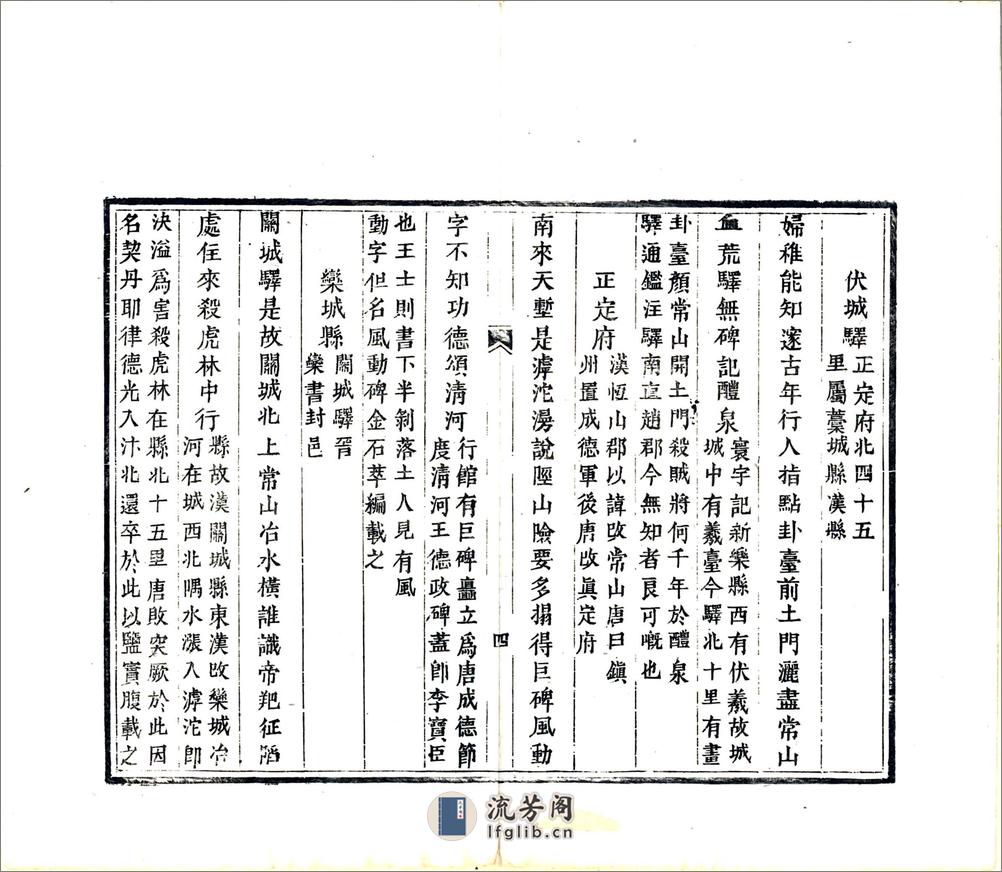 伏城驛正定府北四十五
里屬藁城縣漢縣
婦稚能知邃古年行人指點卦臺前土門灑盡常山
血荒驛無碑記醴泉寰宇記新樂縣西有伏羲故城
城中有羲臺今驛北十里有畫
卦臺顏常山開土門殺賊將何千年於醴泉
驛通鑑注驛南直趙郡今無知者良可嘅也
正定府漢恆山郡以諱改常山唐曰鎭
州置成德軍後唐改眞定府
南來天塹是滹沱漫說陘山險要多搨得巨碑風動
四
字不知功德頌淸河行館有巨碑矗立爲唐成德節
度淸河王德政碑蓋卽李寶臣
也王士則書下半剝落土人見有風
動字但名風動碑金石萃編載之
欒城縣關城驛晉
欒書封邑
關城驛是故關城北上常山冶水橫誰識帝羓征䧟
處往來殺虎林中行縣故漢關城縣東漢改欒城冶
河在城西北隅水漲入滹沱卽
決溢爲害殺虎林在縣北十五里唐敗突厥於此因
名契丹耶律德光入汴北還卒於此以鹽實腹載之
流芳阁
lfglib.cn